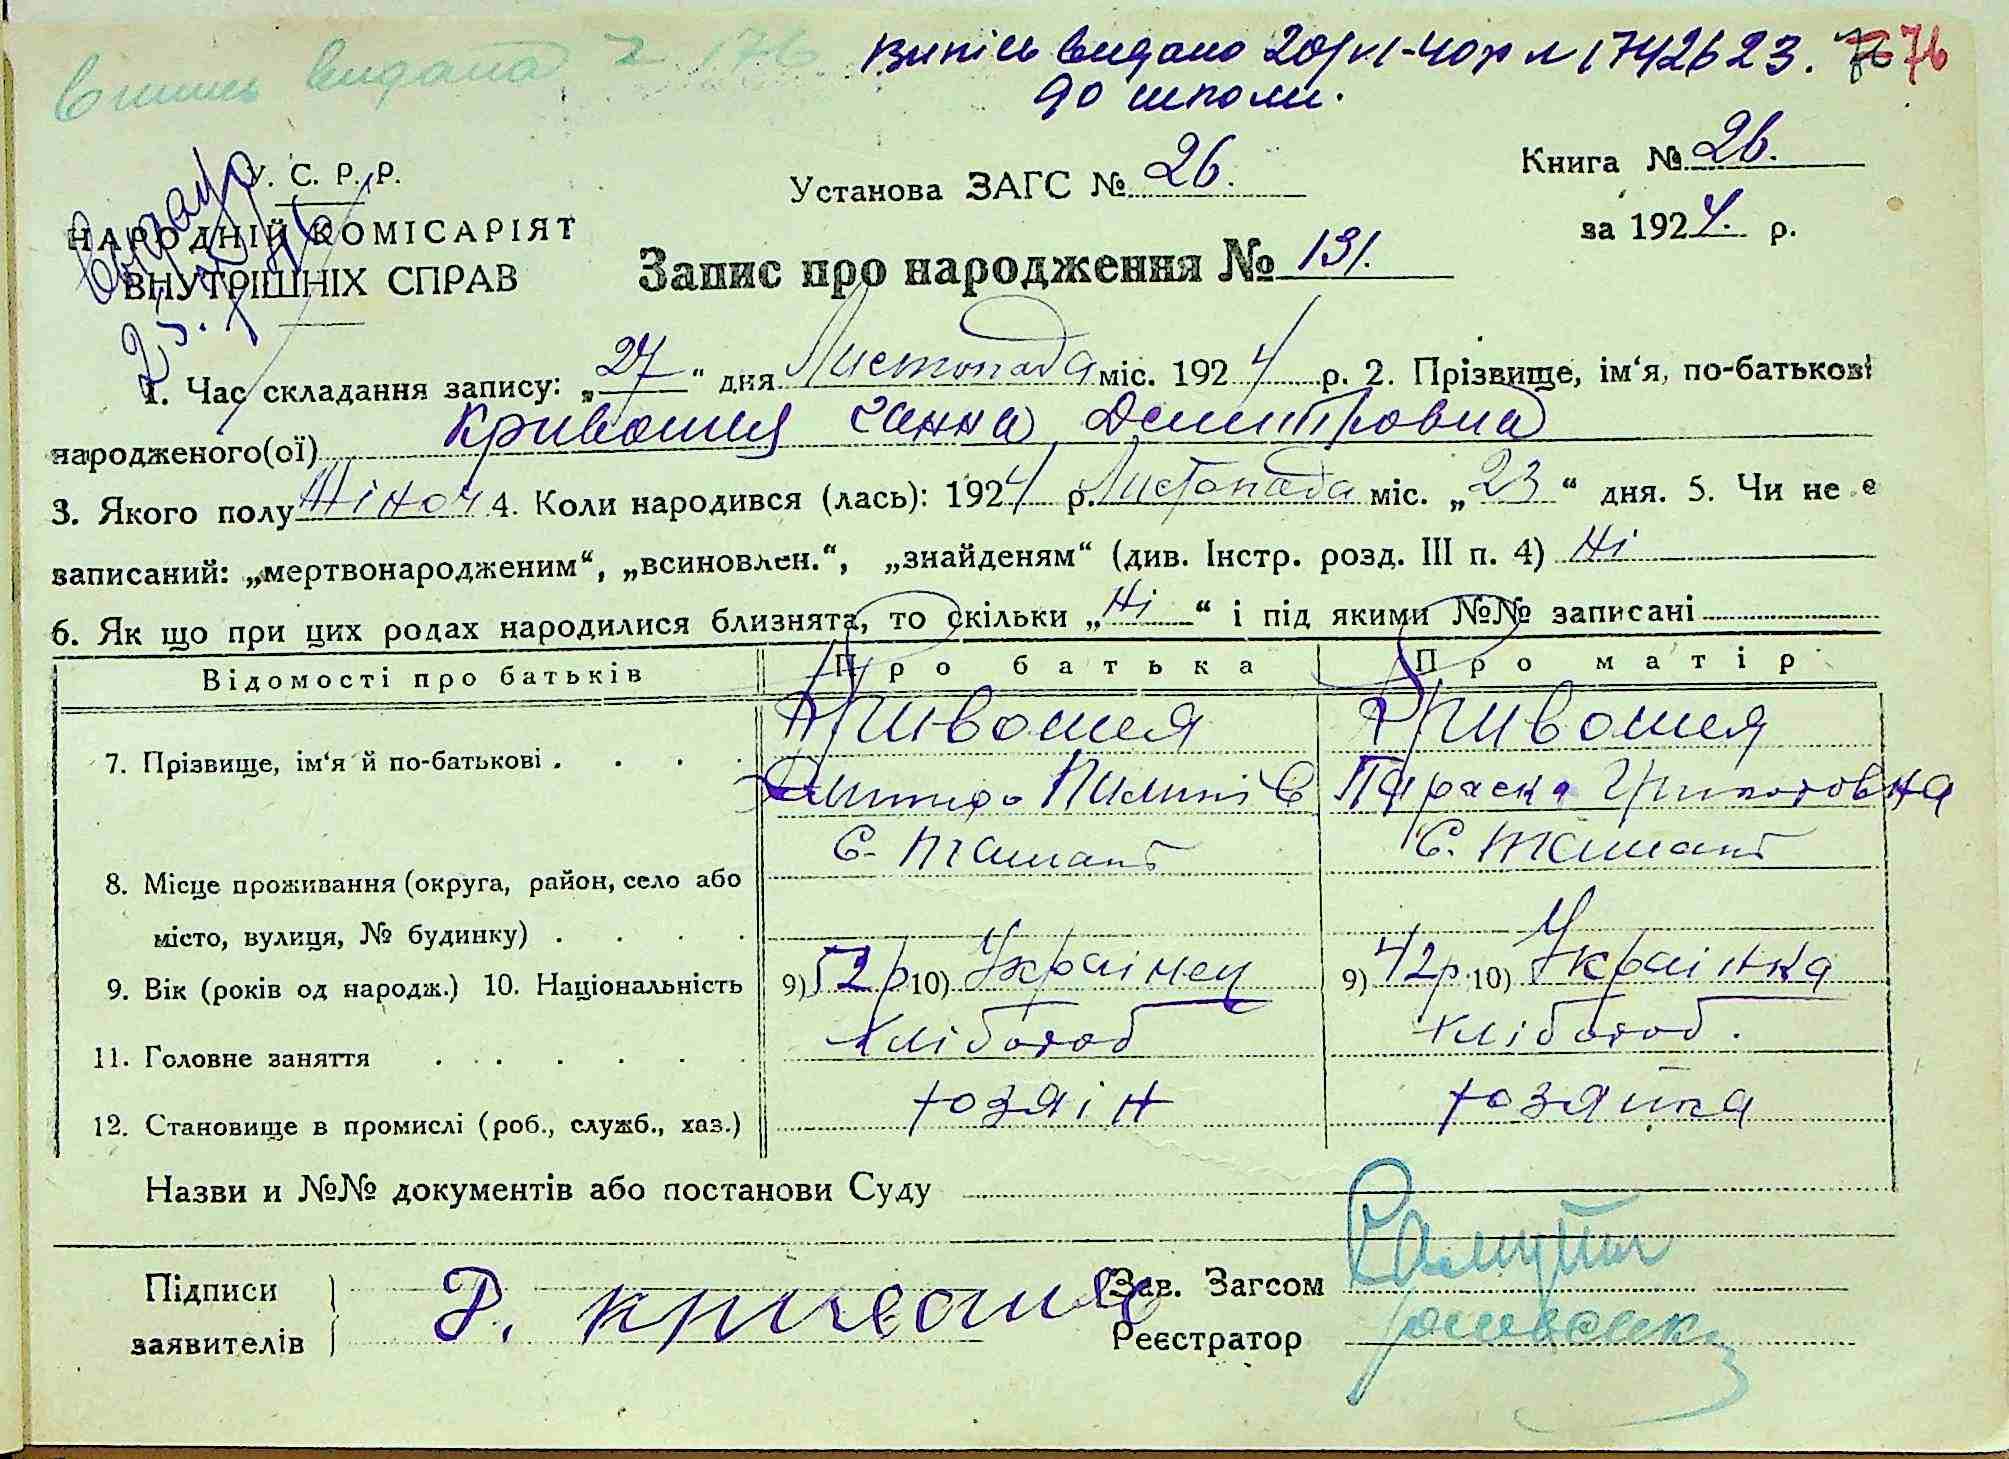 Випись видана 176
Випісь видано 20/VI-40р № 1742623. 76 76
до школи.
У. С. Р. Р.
НАРОДНІЙ КОМІСАРІЯТ
ВНУТРІШНІХ СПРАВ
Видано
Установа ЗАГС № 26.
Книга № 26.
за 1924. р.
Запис про народження № 131.
1. Час складання запису: „27“ дня Листопада міс. 1924 р. 2. Прізвище, ім‘я, по-батькові
народженого(ої) Кривошия Ганна Демитровна
3. Якого полу Жіноч 4. Коли народився (лась): 1924 р. Листопада міс. „23“ дня. 5. Чи не є
записаний: „мертвонародженим“, „всиновлен.“, „знайденям“ (див. Інстр. розд. III п. 4) Ні
6. Як що при цих родах народилися близнята, то скільки „Ні“ і під якими №№ записані
Відомості про батьків Про батька Про матір
7. Прізвище, ім‘я й по-батькові . . . . Кривошея Кривошея
Дмитро Пилипів Параска Григоровна
8. Місце проживання (округа, район, село або С. Ташлик С. Ташлик
місто, вулиця, № будинку) . . . .
9. Вік (років од народж.) 10. Національність 9) 52р 10) Українец 9) 42р. 10) Українка
11. Головне заняття . . . . . . Хлібороб Хлібороб.
12. Становище в промислі (роб., служб., хаз.) хозяін хозяйка
Назви и №№ документів або постанови Суду
Підписи
заявителів
Д. Кривошия
Зав. Загсом
Реєстратор